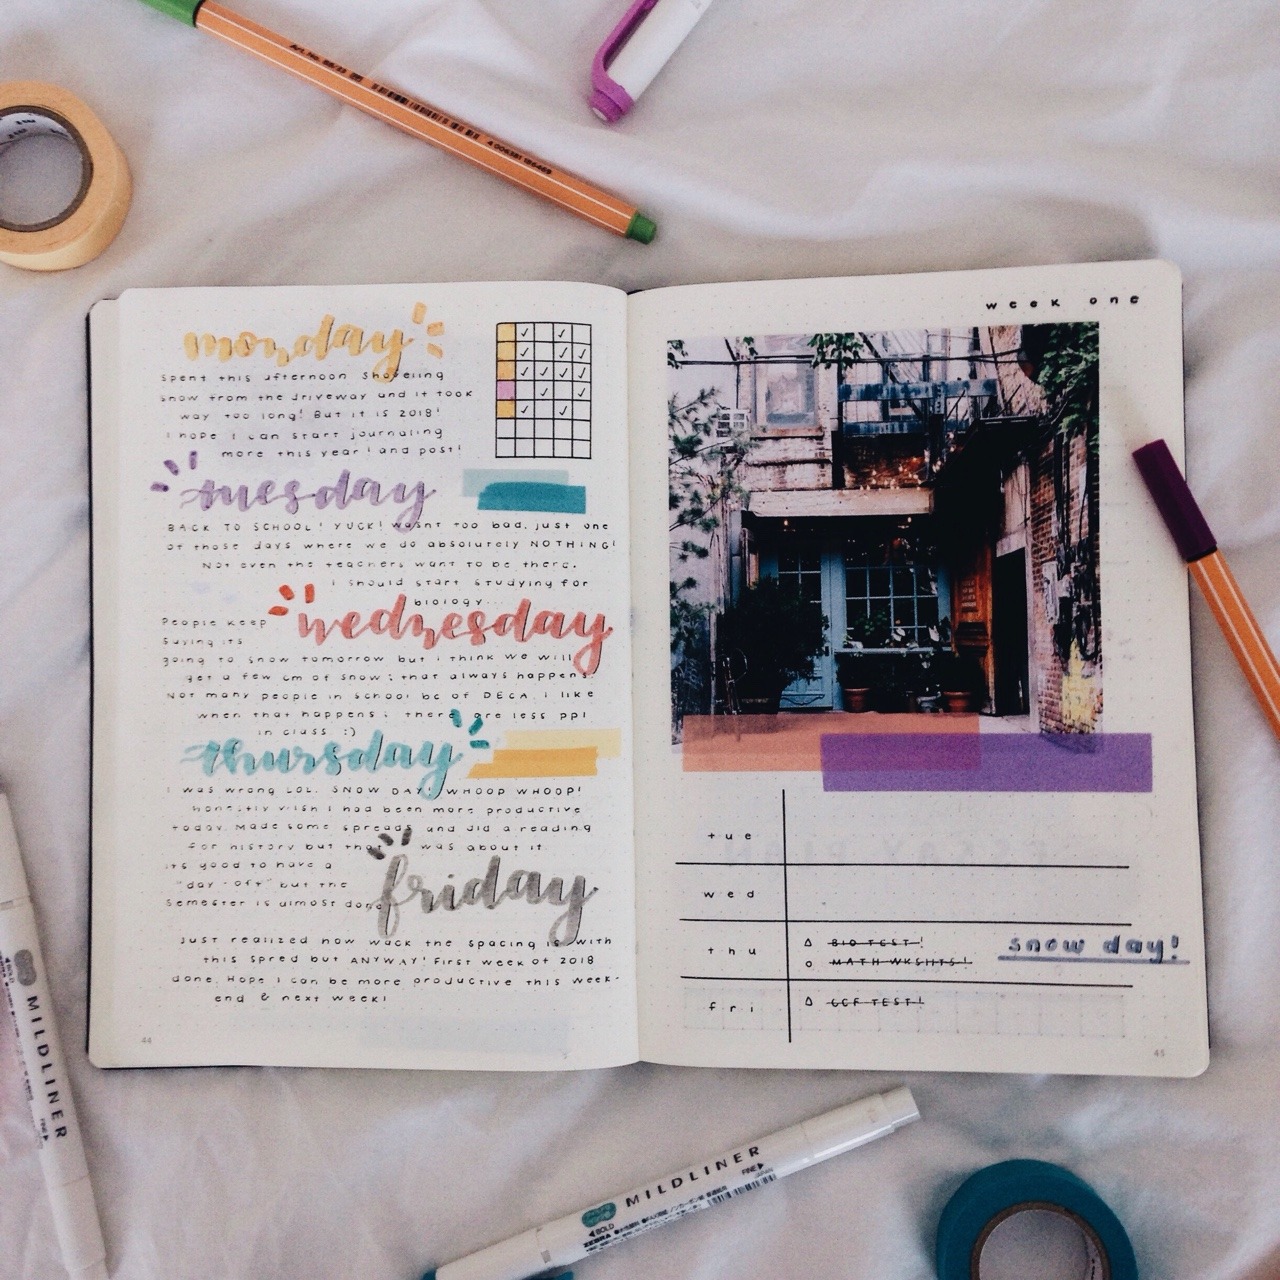 week one
monday
Spent this afternoon shoveling
snow from the driveway and it took
way too long! But it is 2018!
I hope I can start journaling
more this year! and post!
tuesday
BACK TO SCHOOL! YUCK! wasnt too bad, just one
of those days where we do absolutely NOTHING!
Not even the teachers want to be there.
I should start studying for
biology...
wednesday
People keep
saying its
going to snow tomorrow but i think we will
get a few cm of snow; that always happens.
Not many people in school bc of DECA. I like
when that happens; there are less ppl
in class :)
thursday
I was wrong LOL. SNOW DAY! WHOOP WHOOP!
honestly wish I had been more productive
today. Made some spreads and did a reading
for history but that was about it.
its good to have a
"day-off" but the
Semester is almost done
friday
Just realized how wack the spacing is with
this spred but ANYWAY! First week of 2018
done. Hope I can be more productive this week-
end & next week!
44
tue
wed
thu
BIO TEST!
MATH WKSHTS!
snow day!
fri
CCF TEST!
45
MILDLINER
FINE
BOLD
MILDLINER
FINE
JAPAN
BOLD
ZEBRA